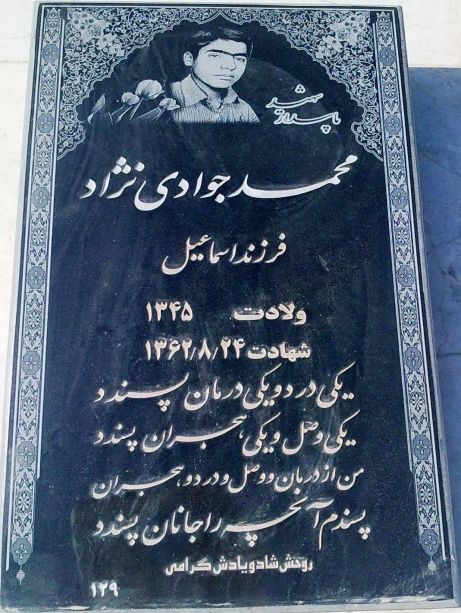 شهید
پاسدار
محمد جوادی نژاد
فرزند اسماعیل
ولادت ۱۳۴۵
شهادت ۱۳۶۲/۸/۲۴
یکی درد و یکی درمان پسندد
یکی وصل و یکی هجران پسندد
من از درمان و وصل و درد و هجران
پسندم آنچه را جانان پسندد
روحش شاد و یادش گرامی
۱۲۹